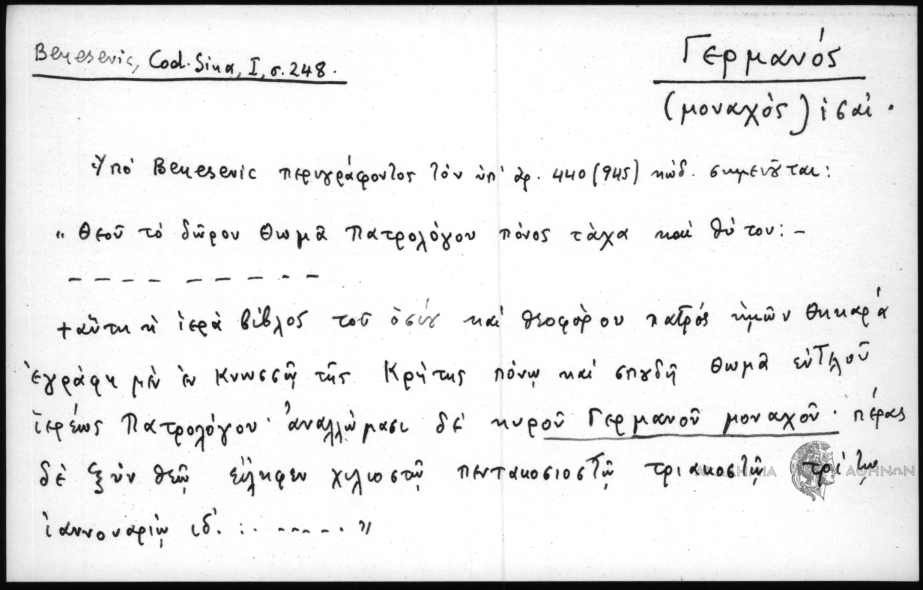 Benesevic, Cod. Sina, I, σ. 248.
Γερμανός
(μοναχὸς) ἱσαί.
Ὑπὸ Benesevic περιγράφοντος τὸν ὑπ' ἀρ. 440 (945) κώδ. σημειοῦται:
"θεοῦ τὸ δῶρον Θωμᾶ Πατρολόγου πόνος τάχα καὶ θύτου: –
– – – – – – – – –
+ αὕτη ἡ ἱερὰ βίβλος τοῦ ὁσίου καὶ θεοφόρου πατρὸς ἡμῶν Θηκαρᾶ
ἐγράφη μὲν ἐν Κνωσσῷ τῆς Κρήτης πόνῳ καὶ σπουδῇ Θωμᾶ εὐτελοῦ
ἱερέως Πατρολόγου· ἀναλλώμασι δὲ κυροῦ Γερμανοῦ μοναχοῦ· πέρας
δὲ ξὺν θεῷ εἴληφεν χιλιοστῷ πεντακοσιοστῷ τριακοστῷ τρίτῳ
ἰαννουαρίῳ ιδ΄. :. – – – – – . "
ΑΘΗΝΩΝ